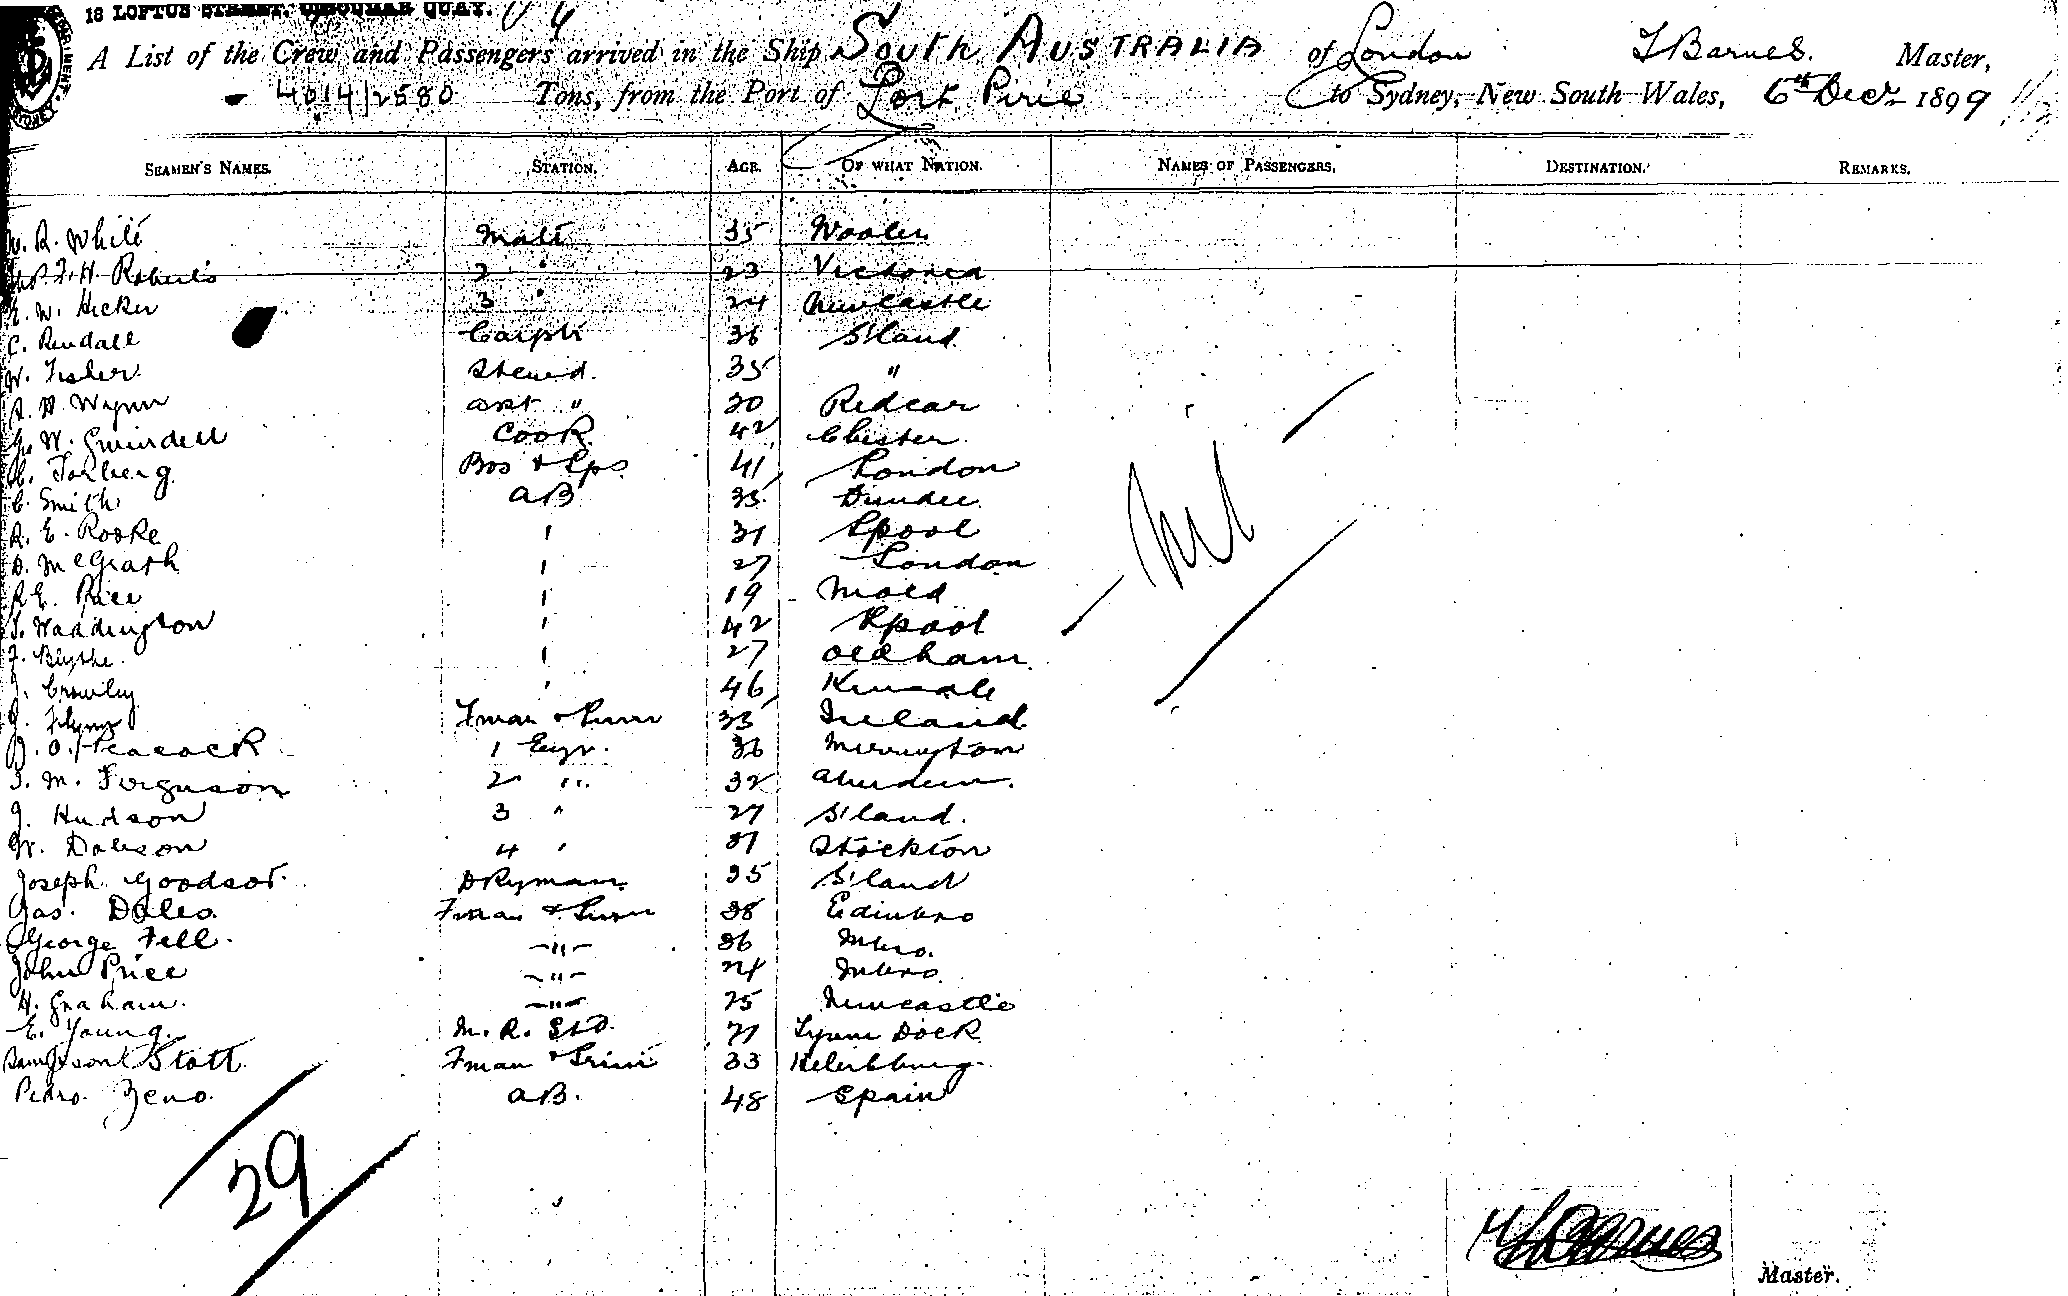 18 LOFTUS STREET, CIRCULAR QUAY.
A List of the Crew and Passengers arrived in the Ship South AUSTRALIA of London T Barnes. Master,
4014/2580 Tons, from the Port of Port Pirie to Sydney, New South Wales, 6th Decr 1899
SEAMEN'S NAMES. STATION. AGE. OF WHAT NATION. NAMES OF PASSENGERS. DESTINATION. REMARKS.
W. R. White Mate 35 Wooler
F. H. Roberts 2 " 23 Victoria
W. Hicker 3 " 24 Newcastle
C. Rendall Carptr 36 S'land
W. Fisler Stewd. 35 "
A. H. Wynn asst " 30 Redcar
W. Gwindell Cook 42 Chester
Forberg Bos & Lps 41 London
C. Smith AB 35 Dundee
R. E. Rooke " 31 Lpool
D. McGrath " 27 London
R E. Rice " 19 Mold
T. Waddington " 42 Lpool
F. Blythe " 27 Oldham
J. Crowley " 46 Kinsale
J. Flynn Fman & Trimr 33 Ireland
J. O. Peacock 1 Engr. 36 Merrington
T. M. Ferguson 2 " 32 Aberdeen.
J. Hudson 3 " 27 S'land.
W. Dobson 4 " 31 Stockton
Joseph Goodsor. DKyman 35 S'land
Jas. Dales. Fman & Trimr 38 Edinbro
George Fell. -"- 36 Mbro.
John Price -"- 24 Mbro
H. Graham. -"- 25 Newcastle
E. Young. M. R. Std. 21 Tyne Dock
Sampson Stott Fman & Trimr 33
Pedro Zeno. AB. 48 Spain
Nil
29
Barnes
Master.